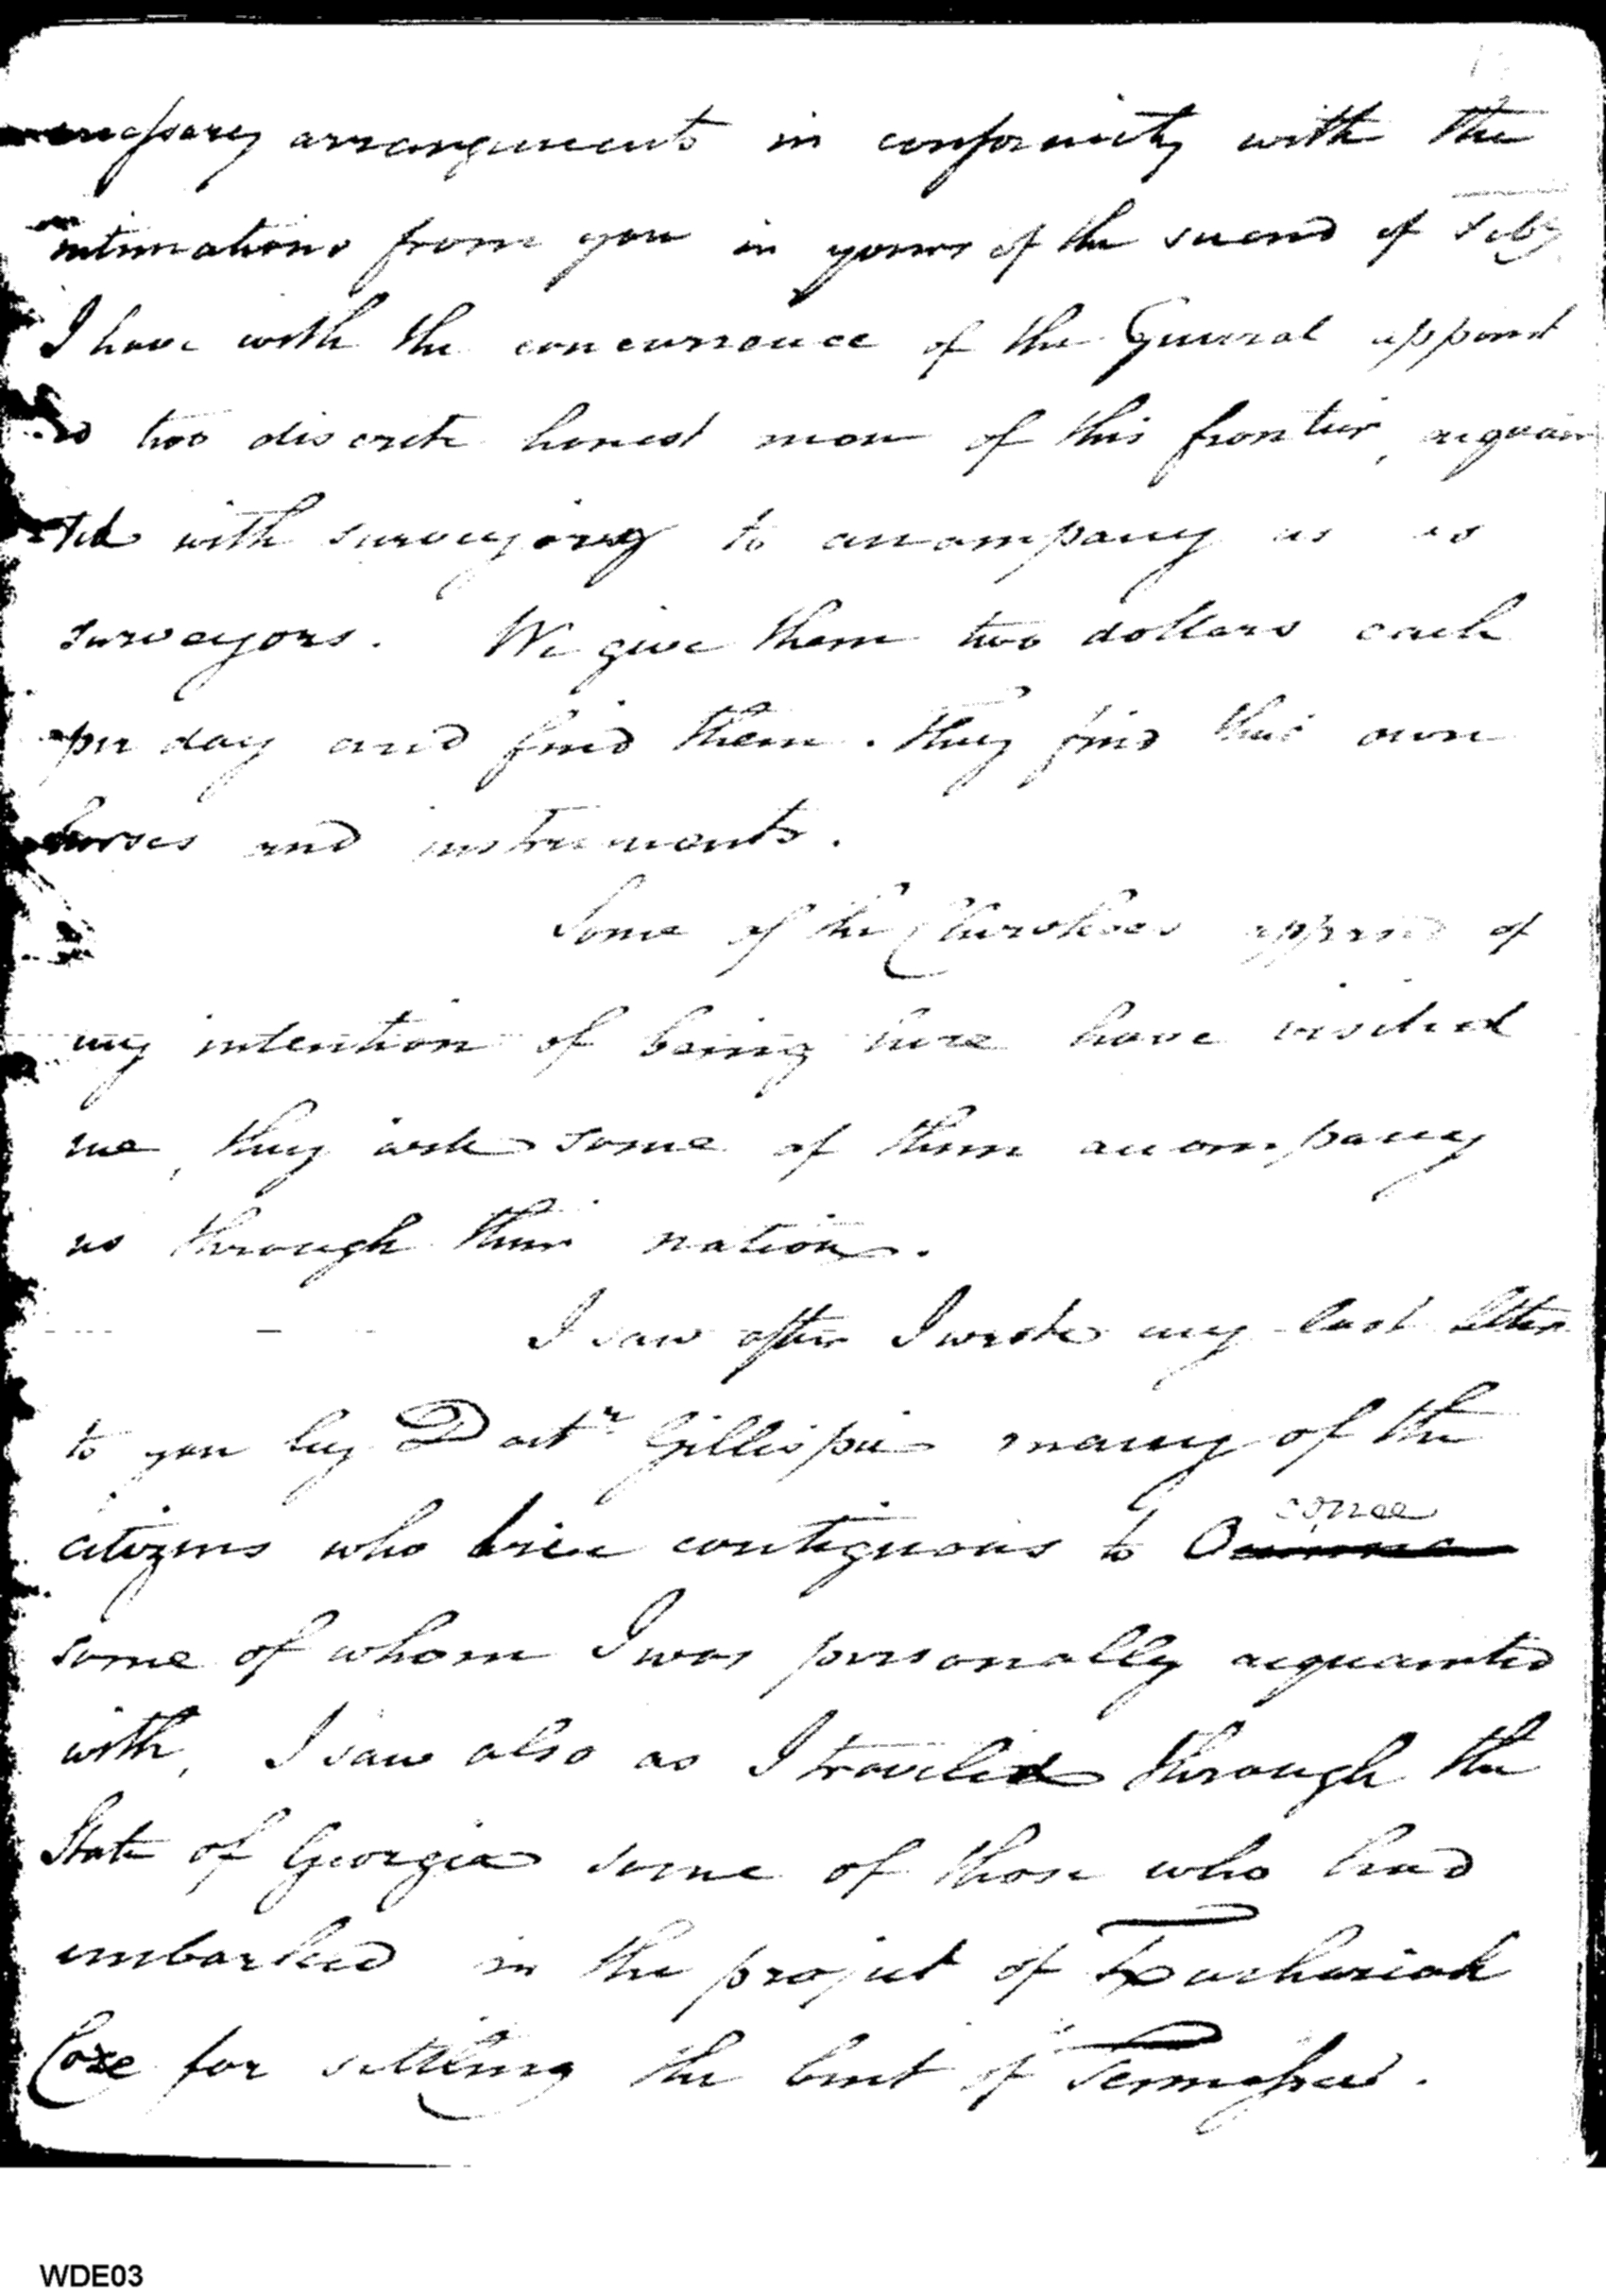 necessary arrangements in conformity with the
intimations from you in yours of the second of Feby
I have with the concurrence of the General appoint
ed two discrete honest men of this frontier, acquain
ted with surveying to accompany us as
surveyors. We give them two dollars each
per day and find them. They find their own
horses and instruments.
Some of the Cherokees apprised of
my intention of being here have visited
me, they wish some of them accompany
us through their nation.
I saw after I wrote my last letter
to you by Doctr Gillispie many of the
citizens who live contiguous to O
conee
some of whom I was personally acquainted
with, I saw also as I traveled through the
State of Georgia some of those who had
embarked in the project of Zachariah
Coxe for settling the bent of Tennessee.
WDE03